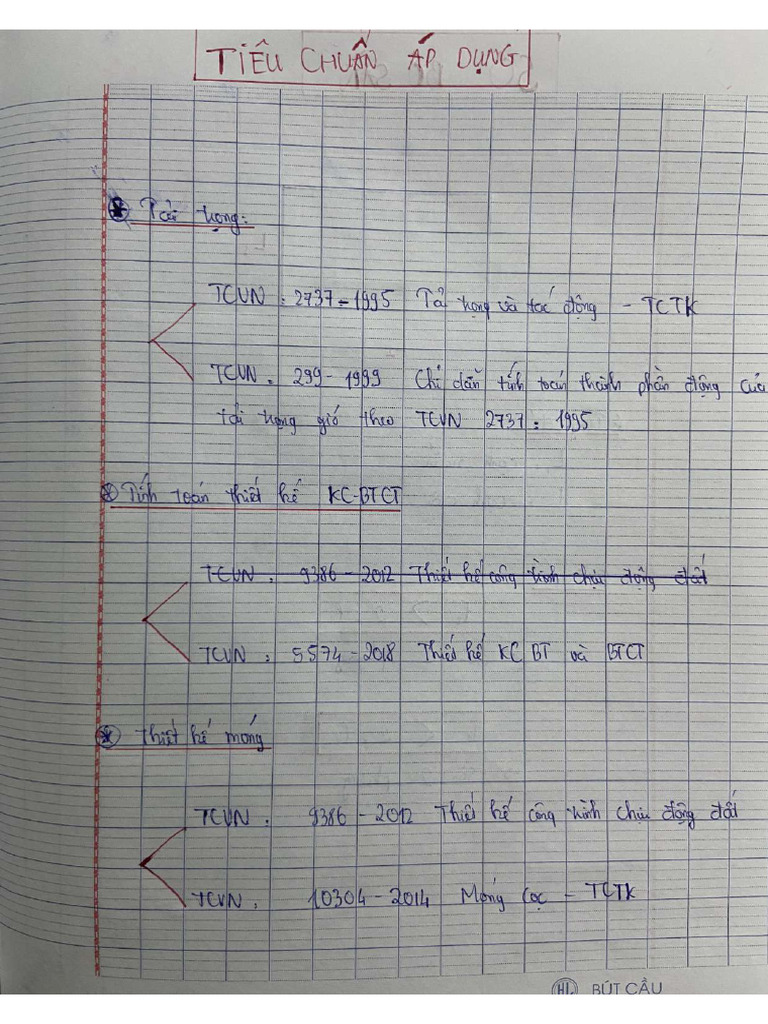 TIÊU CHUẨN ÁP DỤNG
Tải trọng:
TCVN : 2737-1995 Tải trọng và tác động - TCTK
TCVN : 299-1999 Chỉ dẫn tính toán thành phần động của
tải trọng gió theo TCVN 2737 : 1995
Tính toán thiết kế KC-BTCT
TCVN : 9386-2012 Thiết kế công trình chịu động đất
TCVN : 5574-2018 Thiết kế KC BT và BTCT
Thiết kế móng
TCVN : 9386-2012 Thiết kế công trình chịu động đất
TCVN : 10304-2014 Móng Cọc - TCTK
BÚT CẦU